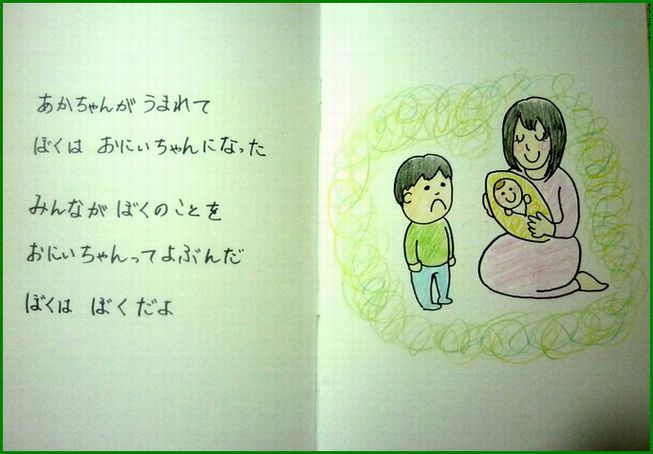 あかちゃんが うまれて
ぼくは おにいちゃんになった
みんなが ぼくのことを
おにいちゃんってよぶんだ
ぼくは ぼくだよ